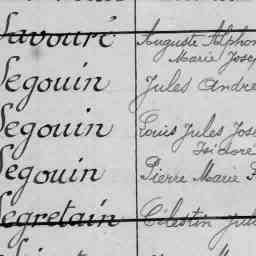 Savouré Auguste Alphon
Marie Jose
Segouin Jules André
Segouin Louis Jules Jos
Isidore
Segouin Pierre Marie F
Segretain Célestin Jul